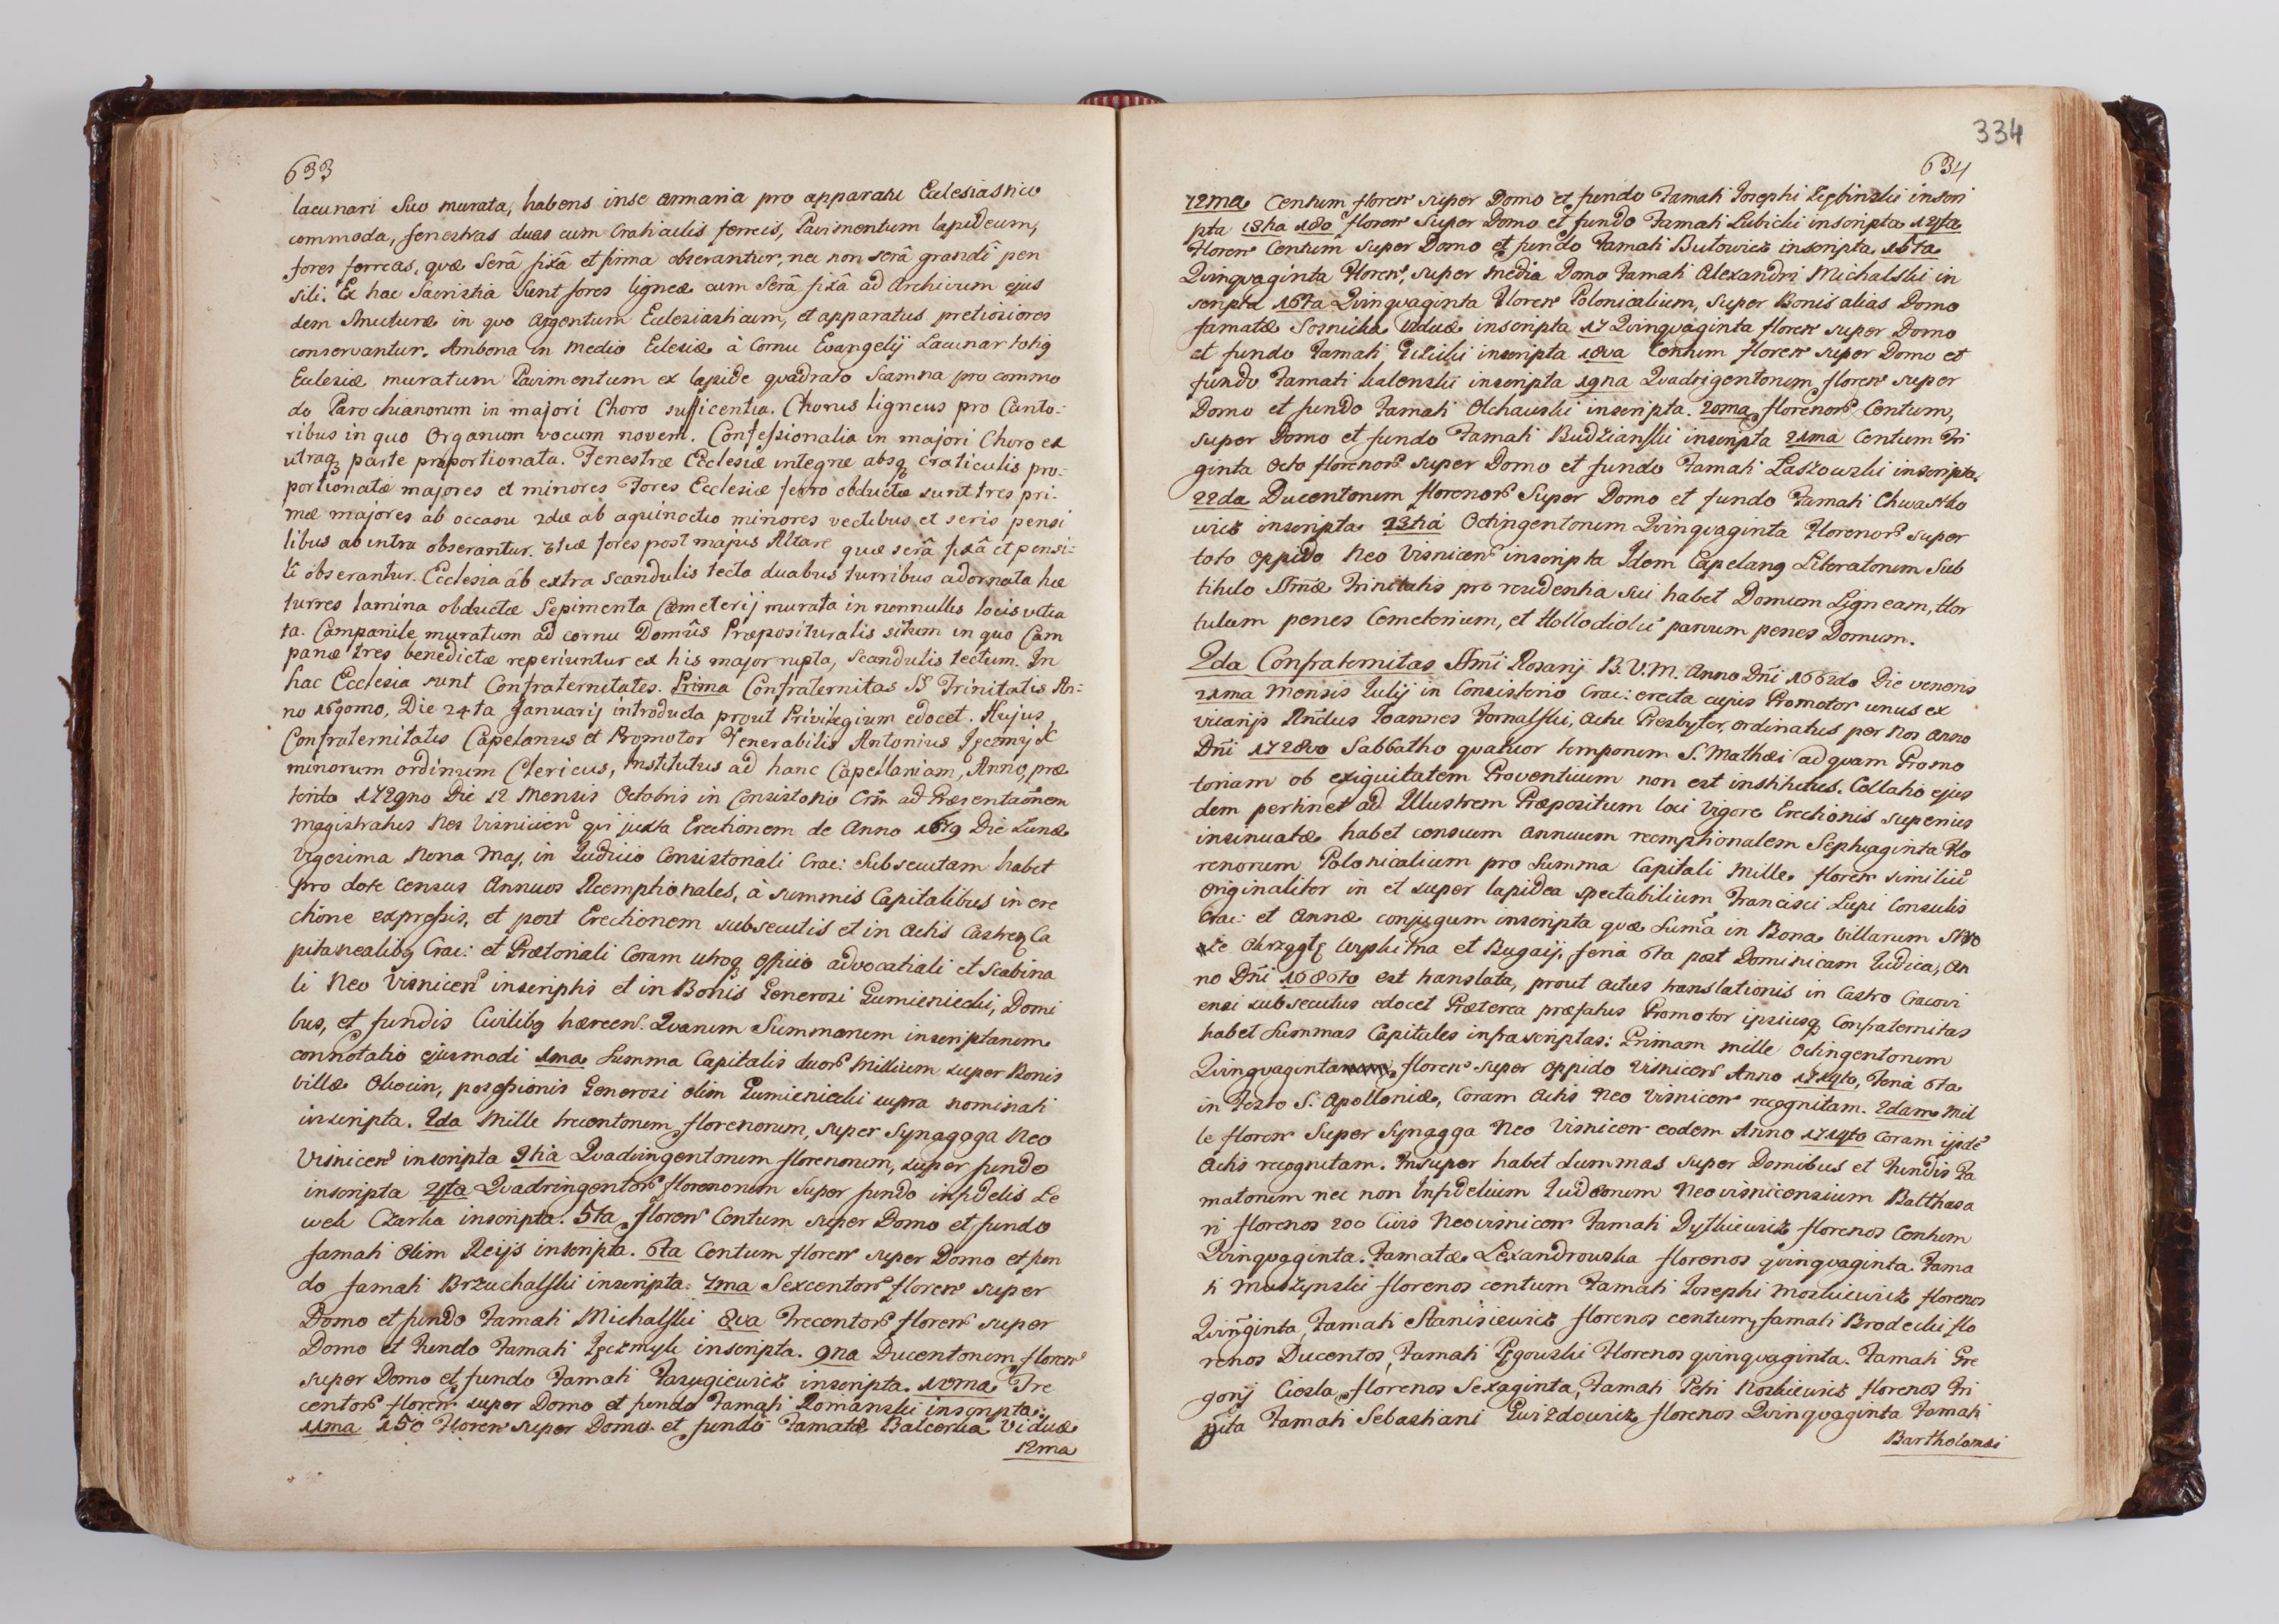 633
lacunari suo murata, habens inse armaria pro apparatu Ecclesiastico
commoda, fenestras duas cum Craticulis ferreis, Pavimentum lapideum,
fores ferreas, quæ serâ fixâ et firma obserantur, nec non serâ grandi pen
sili. Ex hac Sacristia sunt fores ligneæ cum serâ fixâ ad Archivum ejus
dem structuræ in quo Argentum Ecclesiasticum, et apparatus pretiosiores
conservantur. Ambona in medio Eclesiæ à Cornu Evangelij Lacunar totiq
Eclesiæ muratum Pavimentum ex lapide quadrato Scamna pro commo
do Parochianorum in majori Choro sufficientia. Chorus ligneus pro Canto-
ribus in quo Organum vocum novem. Confessionalia in majori Choro ex
utraq parte proportionata. Fenestræ Ecclesiæ integræ absq craticulis pro-
portionatæ majores et minores Fores Ecclesiæ ferro obductæ sunt tres pri-
mæ majores ab occasu 2dæ ab aquinoctio minores vectibus et seris pensi
libus ab intra obserantur. 3tiæ fores post majus Altare quæ serâ fixâ et pensi-
li obserantur. Ecclesia ab extra scandulis tecta duabus turribus adornata hæ
turres lamina obductæ Sepimenta Cæmeterij murata in nonnullis locis vetus
ta. Campanile muratum ad cornu Domûs Præposituralis situm in quo Cam
panæ tres benedictæ reperiuntur ex his major rupta, scandulis tectum. In
hac Ecclesia sunt Confraternitates. Prima Confraternitas SS Trinitatis An-
no 1690mo, Die 24ta Januarij introducta prout Privilegium edocet. Hujus
Confraternitatis Capelanus et Promotor Venerabilis Antonius Jęczmyk
minorum ordinum Clericus, institutus ad hanc Capellaniam, Anno præ
terito 1729no Die 12 Mensis Octobris in Consistorio Crãc ad Præsentaõnem
Magistratus Neo Visnicien qui juxta Erectionem de Anno 1679 Die Lunæ
Vigesima Nona Maj, in Judicio Consistoriali Crac: Subsecutam habet
pro dote census Annuos Reemptionales, à summis Capitalibus in ere
ctione expressis, et post Erectionem subsecutis et in Actis Castren Ca
pitanealibq Crac: et Prætoriali Coram utroq officio advocatiali et Scabina
li Neo Visnicen inscriptis et in Bonis Generosi Gumieniecki, Domi
bus, et fundis Civilibq hæren. Quarum Summarum inscriptarum
connotatio ejusmodi 1ma Summa Capitalis duor Millium super Bonis
villæ Olvcin, possessionis Generosi olim Gumieniecki supra nominati
inscripta. 2da Mille trecentorum florenorum, super Synagoga Neo
Visnicen inscripta 3tia Quadringentorum florenorum, super fundo
inscripta 4ta Quadringentor florenorum super fundo infidelis Le
wek Czarka inscripta. 5ta floren Centum super Domo et fundo
famati olim Reijs inscripta. 6ta Centum floren super Domo et fun
do famati Brzuchalski inscripta. 7ma Sexcentor floren super
Domo et fundo Famati Michalski 8va Trecentor floren super
Domo et Fundo Famati Jęczmyk inscripta. 9na Ducentorum floren
super Domo et fundo Famati Tarugiewicz inscripta. 10ma Tre
centor floren super Domo et fundo Famati Romanski inscripta.
11ma 150 Floren super Domo et fundo Famatæ Balcerka Viduæ
12ma
334
634
12ma Centum floren super Domo et fundo Famati Josephi Ziębinski inscri
pta 13tia 180 floren Super Domo et fundo Famati Lubicki inscripta 14ta
Floren Centum super Domo et fundo Famati Butowicz inscripta 15ta
Quinquaginta Floren, super media Domo Famati Alexandri Michalski in
scripta 16ta Quinquaginta Floren Polonicalium, super Bonis alias Domo
famatæ Sosnicka Viduæ inscripta 17 Quinquaginta floren super Domo
et fundo Famati Gizicki inscripta 18va Centum floren super Domo et
fundo Famati Kalenski inscripta 19na Quadrigentorum floren super
Domo et fundo Famati Olchawski inscripta. 20ma florenor Centum,
super Domo et fundo Famati Budzianski inscripta 21ma Centum Tri
ginta Octo florenor super Domo et fundo Famati Laskowski inscripta
22da Ducentorum florenor Super Domo et fundo Famati Chwastko
wicz inscripta 23tia Octingentorum Quinquaginta Florenor super
toto oppido Neo Visnicen inscripta Idem Capelanq Literatorum sub
titulo SSmæ Trinitatis pro residentia sui habet Domum Ligneam, Hor
tulum penes Cemeterium, et Hollodiolũ parvum penes Domum.
2da Confraternitas SSmi Rosarij B.V.M. Anno Dñi 1662do Die veneris
21ma Mensis Julij in Consistorio Crac: erecta cujus Promotor unus ex
vicarijs Rñdus Joannes Fornalski, actu Presbyter, ordinatus per Nos Anno
Dñi 1728vo Sabbatho quatuor temporum S. Mathæi ad quam Promo
toriam ob exiguitatem Proventuum non est institutus. Collatio ejus
dem pertinet ad Illustrem Præpositum loci vigore Erectionis superius
insinuatæ habet censum annuum reemptionalem Septuaginta Flo
renorum Polonicalium pro Summa Capitali Mille floren similiũ
originaliter in et super lapidea spectabilium Francisci Lupi Consulis
Crac: et Annæ conjugum inscripta quæ Sum̃a in Bona Villarum
et Bugaij, feria 6ta post Dominicam Judica, An
no Dñi 1686to est translata, prout actus translationis in Castro Cracovi
ensi subsecutus edocet Præterea præfatus Promotor ipsiusq Confraternitas
habet Summas Capitales infrascriptas: Primam Mille Octingentorum
Quinquaginta floren super oppido Visnicen Anno 1714to, Feria 6ta
in Festo S. Apolloniæ, Coram Actis Neo Visnicen recognitam. 2dam Mil
le floren Super Synagga Neo Visnicen eodem Anno 1714to Coram ijsdẽ
Actis recognitam. Insuper habet Summas super Domibus et Fundis Fa
matorum nec non Infidelium Judæorum Neovisnicensium Balthasa
ri florenos 200 Civis Neovisnicen Famati Dytkiewicz florenos Centum
Quinquaginta. Famatæ Lexandrowska florenos quinquaginta. Fama
ti Muszynski florenos centum Famati Josephi Moskiewicz florenos
Quinginta, Famati Stanisiewicz florenos centum, famati Brodecki flo
renos Ducentos, Famati Pęgowski Florenos quinquaginta. Famati Gre
gorij Ciosla florenos Sexaginta, Famati Petri Noskiewicz florenos Tri
ginta Famati Sebastiani Gwizdowicz florenos Quinquaginta Famati
Bartholomæi